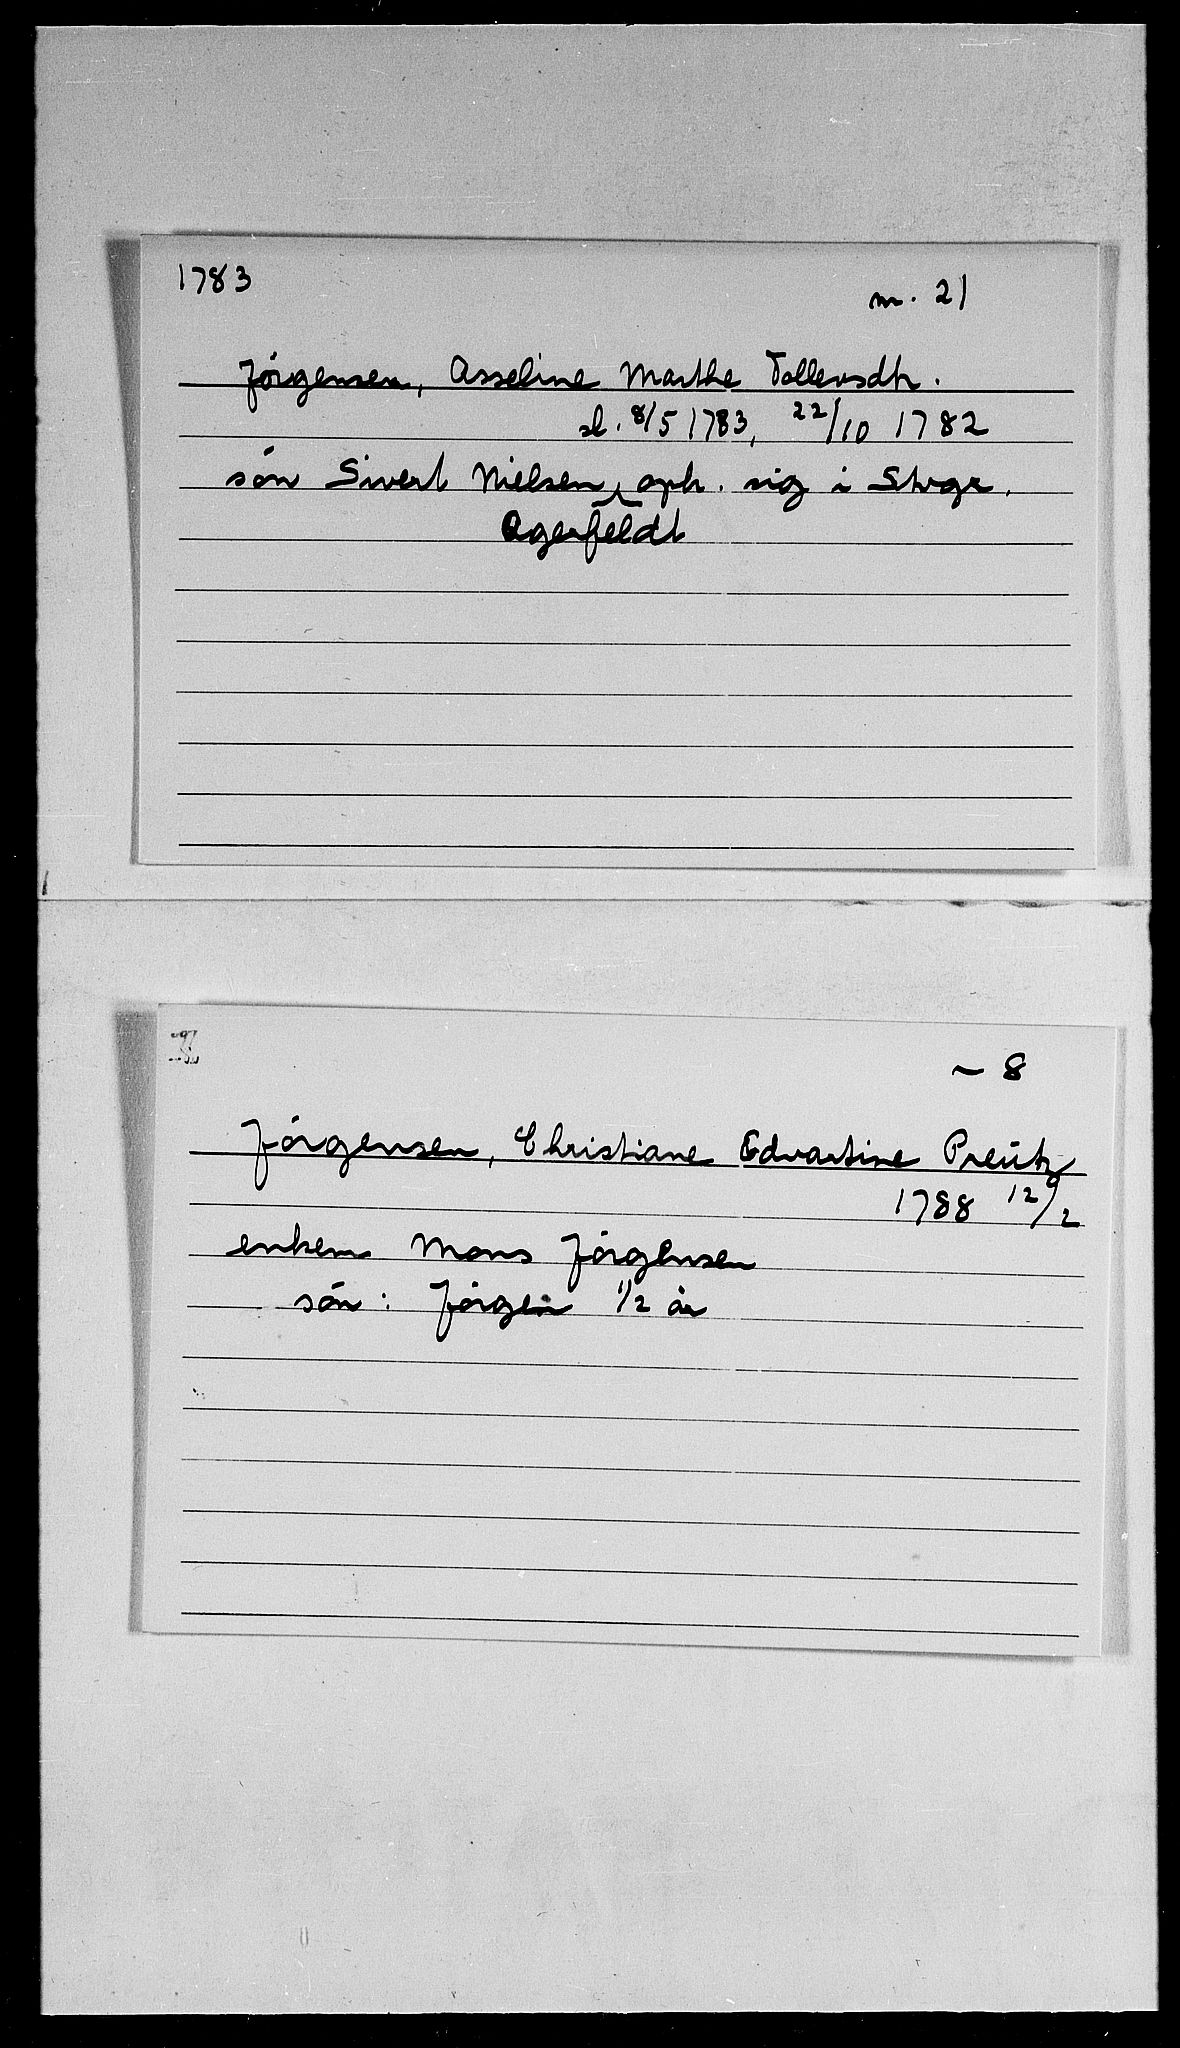 1783
nr. 21
Jörgensen, Asseline Marthe Tollevsdtr.
sl. 8/5 1783, 22/10 1782
sön Sivert Nielsen oph. sig i Stvgr.
Agerfeldt
- 8
Jörgensen, Christiane Edvartine Preütz
1788 12/2
enkem. Mons Jörgensen
sön: Jörgen 1/2 år